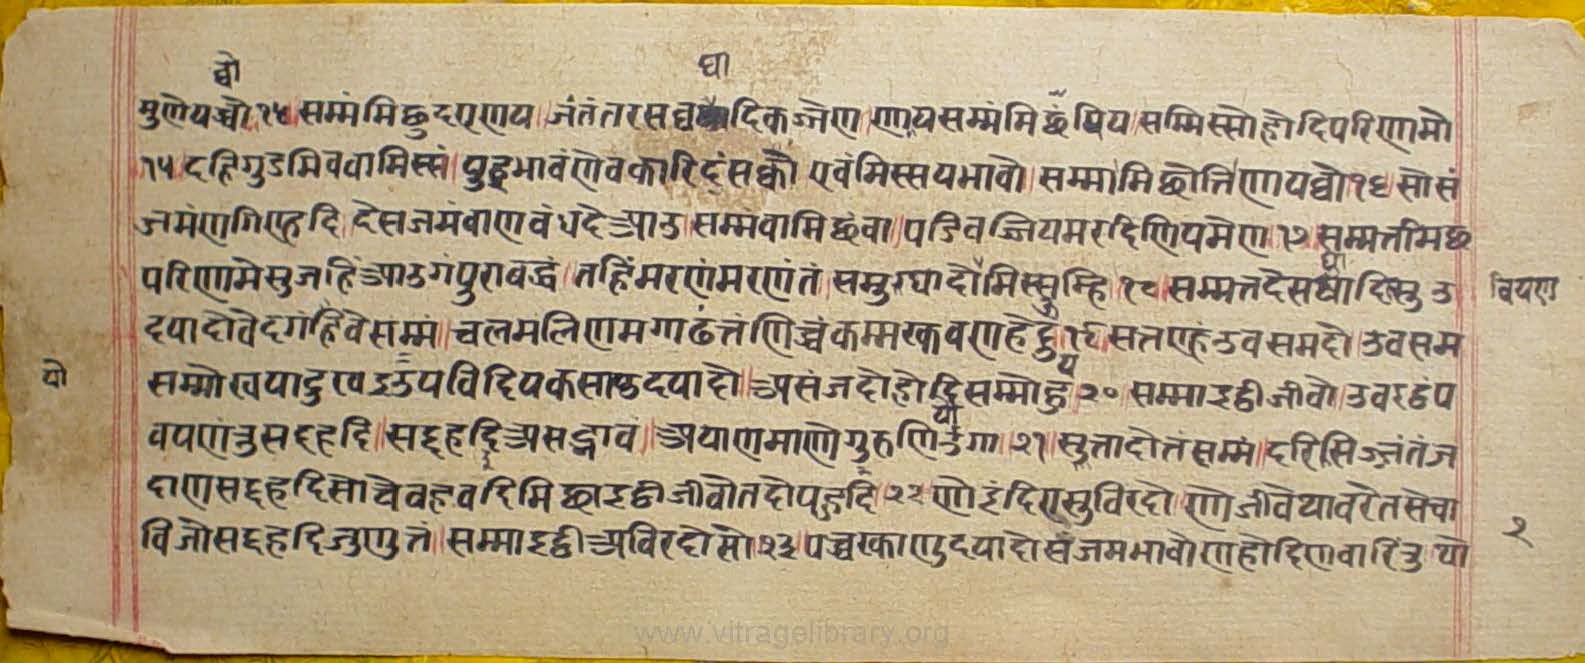 व्वो घा
मुणेयव्वो १५ सम्मंमिछुदएणय जंतंतरसव्वघादिकज्जेण णयसम्मंमिछंपिय सम्मिस्सोहोदिपरिणामो
१५ दहिगुडमिववामिस्सं पुहभावंणेवकारिदुंसक्को एवंमिस्सयभावो सम्मामिछोत्तिणायव्वो १६ सोसं
जमंणगिण्हदि देसजमंवाणवंधदेआउ सम्मंवामिछंवा पडिवज्जियमरदिणियमेण १७ सम्मत्तमिछ
परिणामेसुजहिंआउगंपुरावद्धं तहिंमरणंमरणंतं समुग्घादोमिस्सुम्हि १८ सम्मत्तदेसघादिस्सु उ
वियण
दयादोवेदगंहवेसम्मं चलमलिणमगाढंत्तंणिच्चंकम्मख्कवणहेदु १९ सत्तण्हंउवसमदो उवसम
यो
सम्मोखयादुखइउय विदियकसाउदयादो असंजदोहोदिसम्मोहु २० सम्माइट्ठीजीवो उवइठंप
वयणंतुसद्दहदि सद्दहदिअसद्भावं अयाणमाणोगुरुणिउगा २१ सुत्तादोतंसम्मं दरिसिज्जंतंज
दाणसद्दहदि सोचेवहवदिमिछाइट्ठीजीवोतदोपहुदि २२ णोइंदिएसुविरदो णोजीवेथावरेतसेचा
२
विजोसद्दहेदिजुणुत्तं सम्माइट्ठीअविरदोसो २३ पच्चख्काणुदयादोसंजमभावोणहोदिणवारिंतु थो
www.vitragelibrary.org